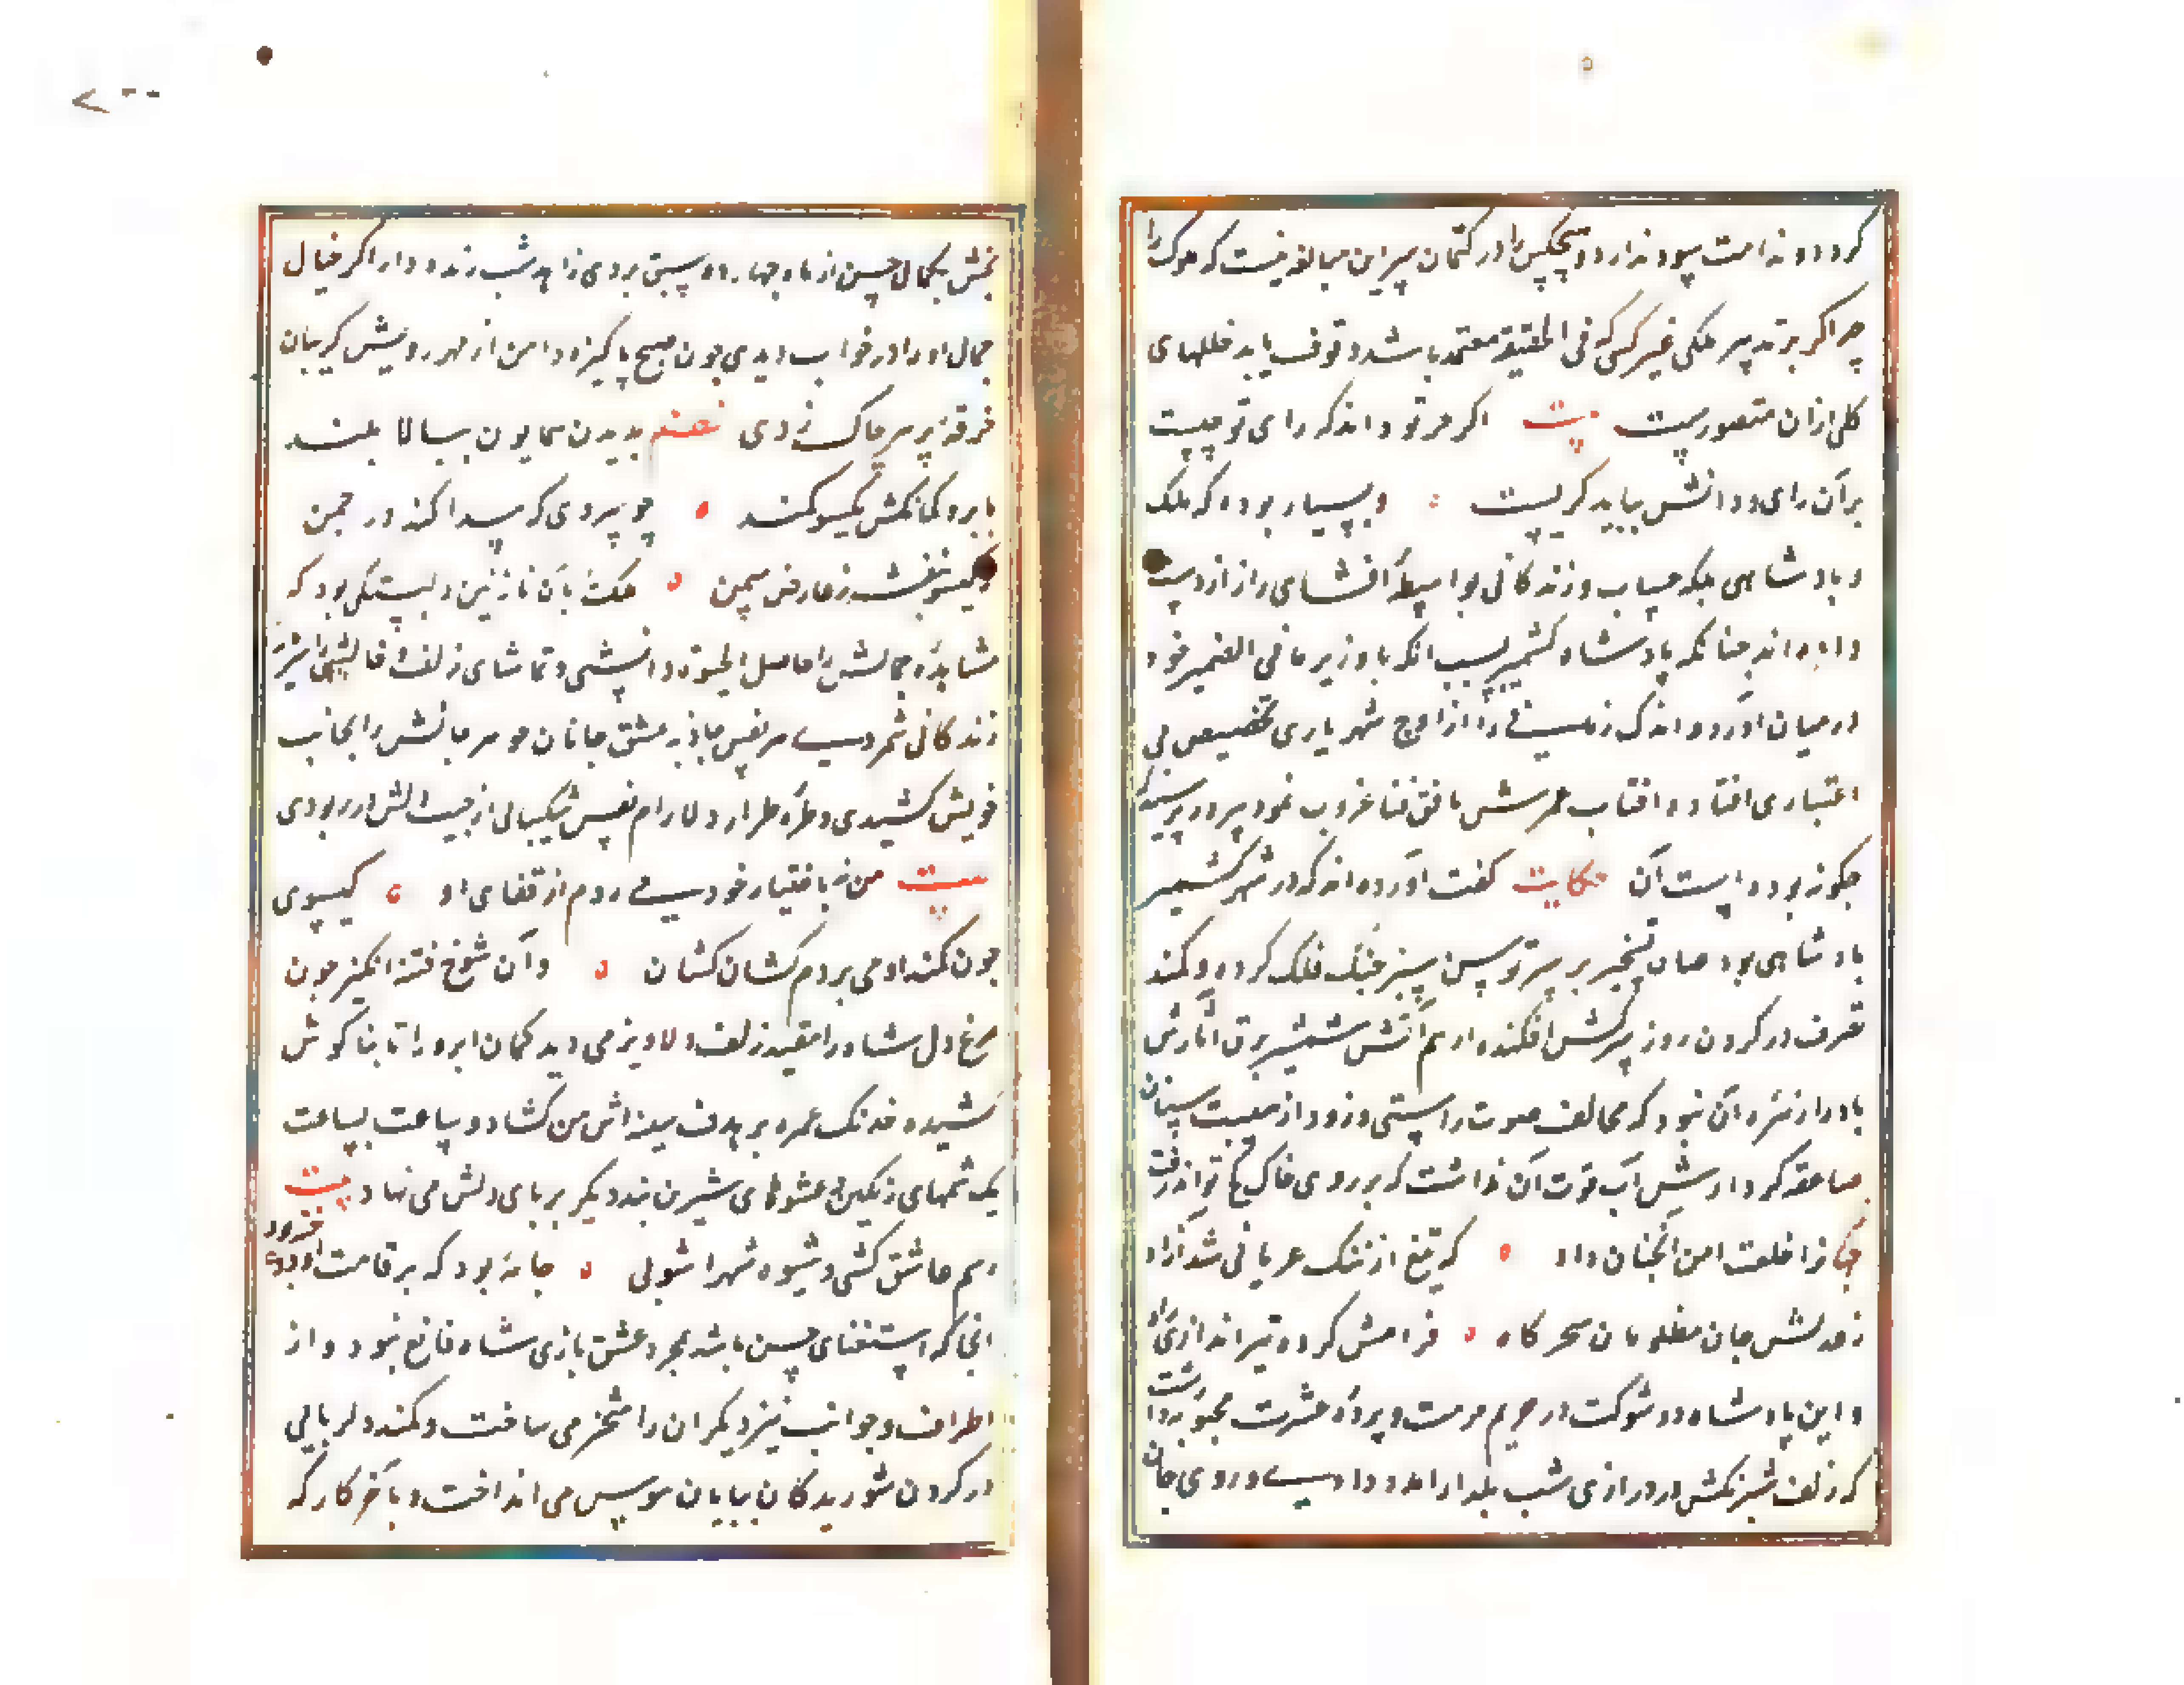 کردد و ندامت سود ندارد و هیچکس را در کتمان سر این مبالغه نیست که ملوک را
چرا اکر بر تدبیر ملکی غیر کسی که فی الحقیقة معتمد باشد وقوف یابد خللهای
کلی ازان متصورست بیت اکر جز تو داند که رای تو چیست
برآن رای و دانش بباید کریست و بسیار بوده که ملک
و بادشاهی بلکه حیات و زندکانی بواسطه افشای راز از دست
داده اند جنانکه بادشاه کشمیر بسبب انکه با وزیر ما فی الضمیر خود
درمیان آورد و اندک زمانی را از اوج شهریاری بحضیض بی
اعتباری افتاد و افتاب عمرش بافق فنا غروب نمود پرسیدند که
جکونه بوده است آن حکایت کفت آورده اند که در شهر کشمیر
بادشاهی بود عنان تسخیر بر سر توسن سبز خنک فلک کرده و کمند
تصرف در کردن روز سرکش افکنده از بیم آتش شمشیر برق آثارش
باد را زهره آن نبود که مخالف صوت راستی وزد و از هیبت سنان
صاعقه کردارش آب قوت آن نداشت که بر روی خاک کج تواند رفت
جهانرا خلعت امن آنجنان داد که تیغ از ننک عریانی شد آزاد
ز عدلش جان مظلومان سحرکاه فرامش کرده تیراندازی آه
و این بادشاه ذو شوکت در حریم حرمت و پرده عشرت محبوبه داشت
که زلف شبرنکش در درازی شب یلدا را مدد دادی و روی جان
بخش بکمال حسن از ماه چهارده سبق بردی زاهد شب زنده دار اکر خیال
جمال او را در خواب دیدی جون صبح پاکیزه دامن از مهر رویش کریبان
خرقه بر سر چاک زدی نظم بدیدن همایون ببالا بلند
بابرو کمانکش بکیسو کمند چو سروی که پیدا کند در جمن
ز کیسو بنفشه ز عارض سمن ملک را بآن نازنین دلبستکی بود که
مشاهده جمالش را حاصل الحیوة دانستی و تماشای زلف و خالش را سرمایه
زندکانی شمردی هر نفس جاذبه عشق جانان جوهر جانش را بجانب
خویش کشیدی و طره طرار دلارام نفس شکیبائی از جیب دلش در ربودی
بیت من نه باختیار خود می روم از قفای او کیسوی
جون کمند او می بردم کشان کشان و آن شوخ فتنه انکیز جون
مرغ دل شاه را مقید زلف دلاویز می دید کمان ابرو را تا بناکوش
کشیده خدنک غمزه بر هدف سینه اش می کشاد و ساعت بساعت
بکرشمهای رنکین و عشوهای شیرین بند دیکر بر پای دلش می نهاد بیت
رسم عاشق کشی و شیوه شهرآشوبی جامه بود که بر قامت او دوخته بود
انجا که استغنای حسن باشد بمجرد عشق بازی شاه قانع نبود و از
اطراف و جوانب نیز دیکران را مسخر می ساخت و کمند دلربائی
در کردن شوریدکان بیابان هوس می انداخت و بآخر کار که